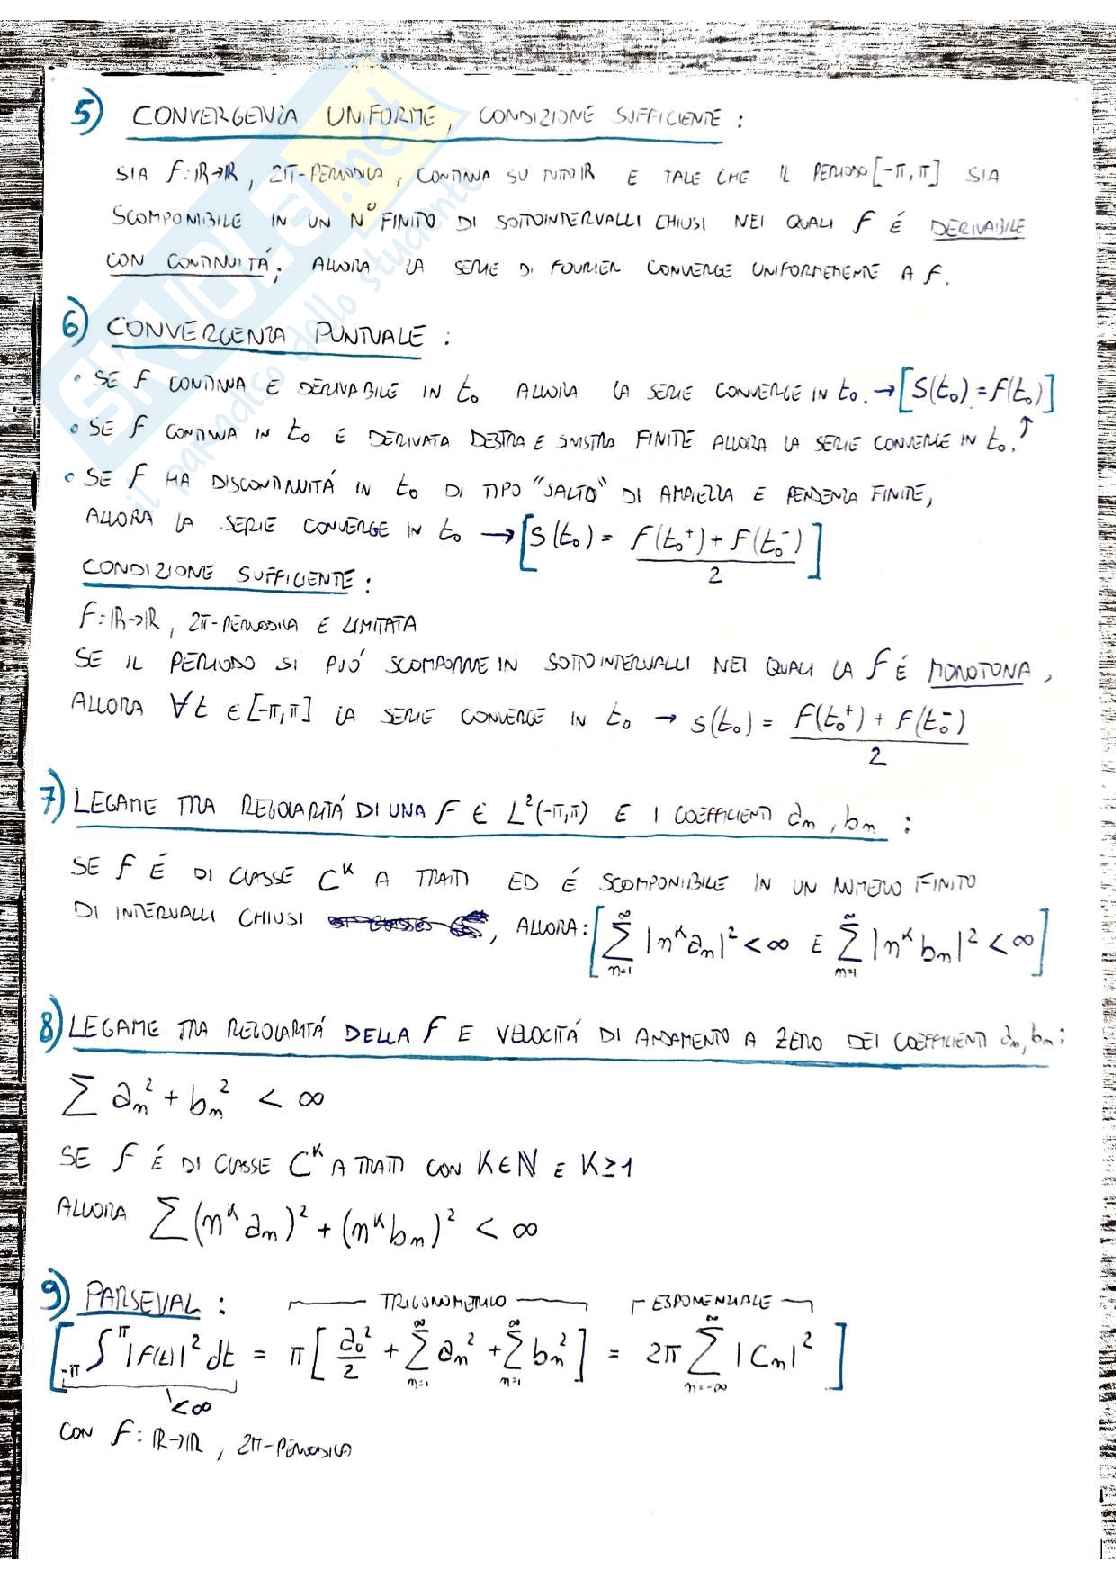 5) CONVERGENZA UNIFORME, CONDIZIONE SUFFICIENTE :
SIA f: ℝ→ℝ, 2π-PERIODICA, CONTINUA SU TUTTO ℝ E TALE CHE IL PERIODO [-π, π] SIA
SCOMPONIBILE IN UN N° FINITO DI SOTTOINTERVALLI CHIUSI NEI QUALI f É DERIVABILE
CON CONTINUITÁ; ALLORA LA SERIE DI FOURIER CONVERGE UNIFORMEMENTE A f.
6) CONVERGENZA PUNTUALE :
• SE f CONTINUA E DERIVABILE IN t₀ ALLORA LA SERIE CONVERGE IN t₀. → [S(t₀) = f(t₀)]
• SE f CONTINUA IN t₀ E DERIVATA DESTRA E SINISTRA FINITE ALLORA LA SERIE CONVERGE IN t₀. ↑
• SE f HA DISCONTINUITÁ IN t₀ DI TIPO "SALTO" DI AMPIEZZA E PENDENZA FINITE,
ALLORA LA SERIE CONVERGE IN t₀ → [S(t₀) = (f(t₀⁺) + f(t₀⁻))/2]
CONDIZIONE SUFFICIENTE :
f: ℝ→ℝ, 2π-PERIODICA E LIMITATA
SE IL PERIODO SI PUÓ SCOMPORRE IN SOTTOINTERVALLI NEI QUALI LA f É MONOTONA,
ALLORA ∀t ∈ [-π, π] LA SERIE CONVERGE IN t₀ → S(t₀) = (f(t₀⁺) + f(t₀⁻))/2
7) LEGAME TRA REGOLARITÁ DI UNA f ∈ L²(-π,π) E I COEFFICIENTI aₙ, bₙ :
SE f É DI CLASSE Cᴷ A TRATTI ED É SCOMPONIBILE IN UN NUMERO FINITO
DI INTERVALLI CHIUSI , ALLORA: [∑ₙ₌₁^∞ |nᴷaₙ|² < ∞ E ∑ₙ₌₁^∞ |nᴷbₙ|² < ∞]
8) LEGAME TRA REGOLARITÁ DELLA f E VELOCITÁ DI ANDAMENTO A ZERO DEI COEFFICIENTI aₙ, bₙ :
∑ aₙ² + bₙ² < ∞
SE f É DI CLASSE Cᴷ A TRATTI CON K∈N E K≥1
ALLORA ∑ (nᴷaₙ)² + (nᴷbₙ)² < ∞
9) PARSEVAL : TRIGONOMETRICO ESPONENZIALE
[∫_{-π}^{π} |f(t)|² dt = π[a₀²/2 + ∑ₙ₌₁^∞ aₙ² + ∑ₙ₌₁^∞ bₙ²] = 2π ∑_{n=-∞}^∞ |Cₙ|²]
<∞
CON f: ℝ→ℝ, 2π-PERIODICA
SKUOLA.net
il paradiso dello studente